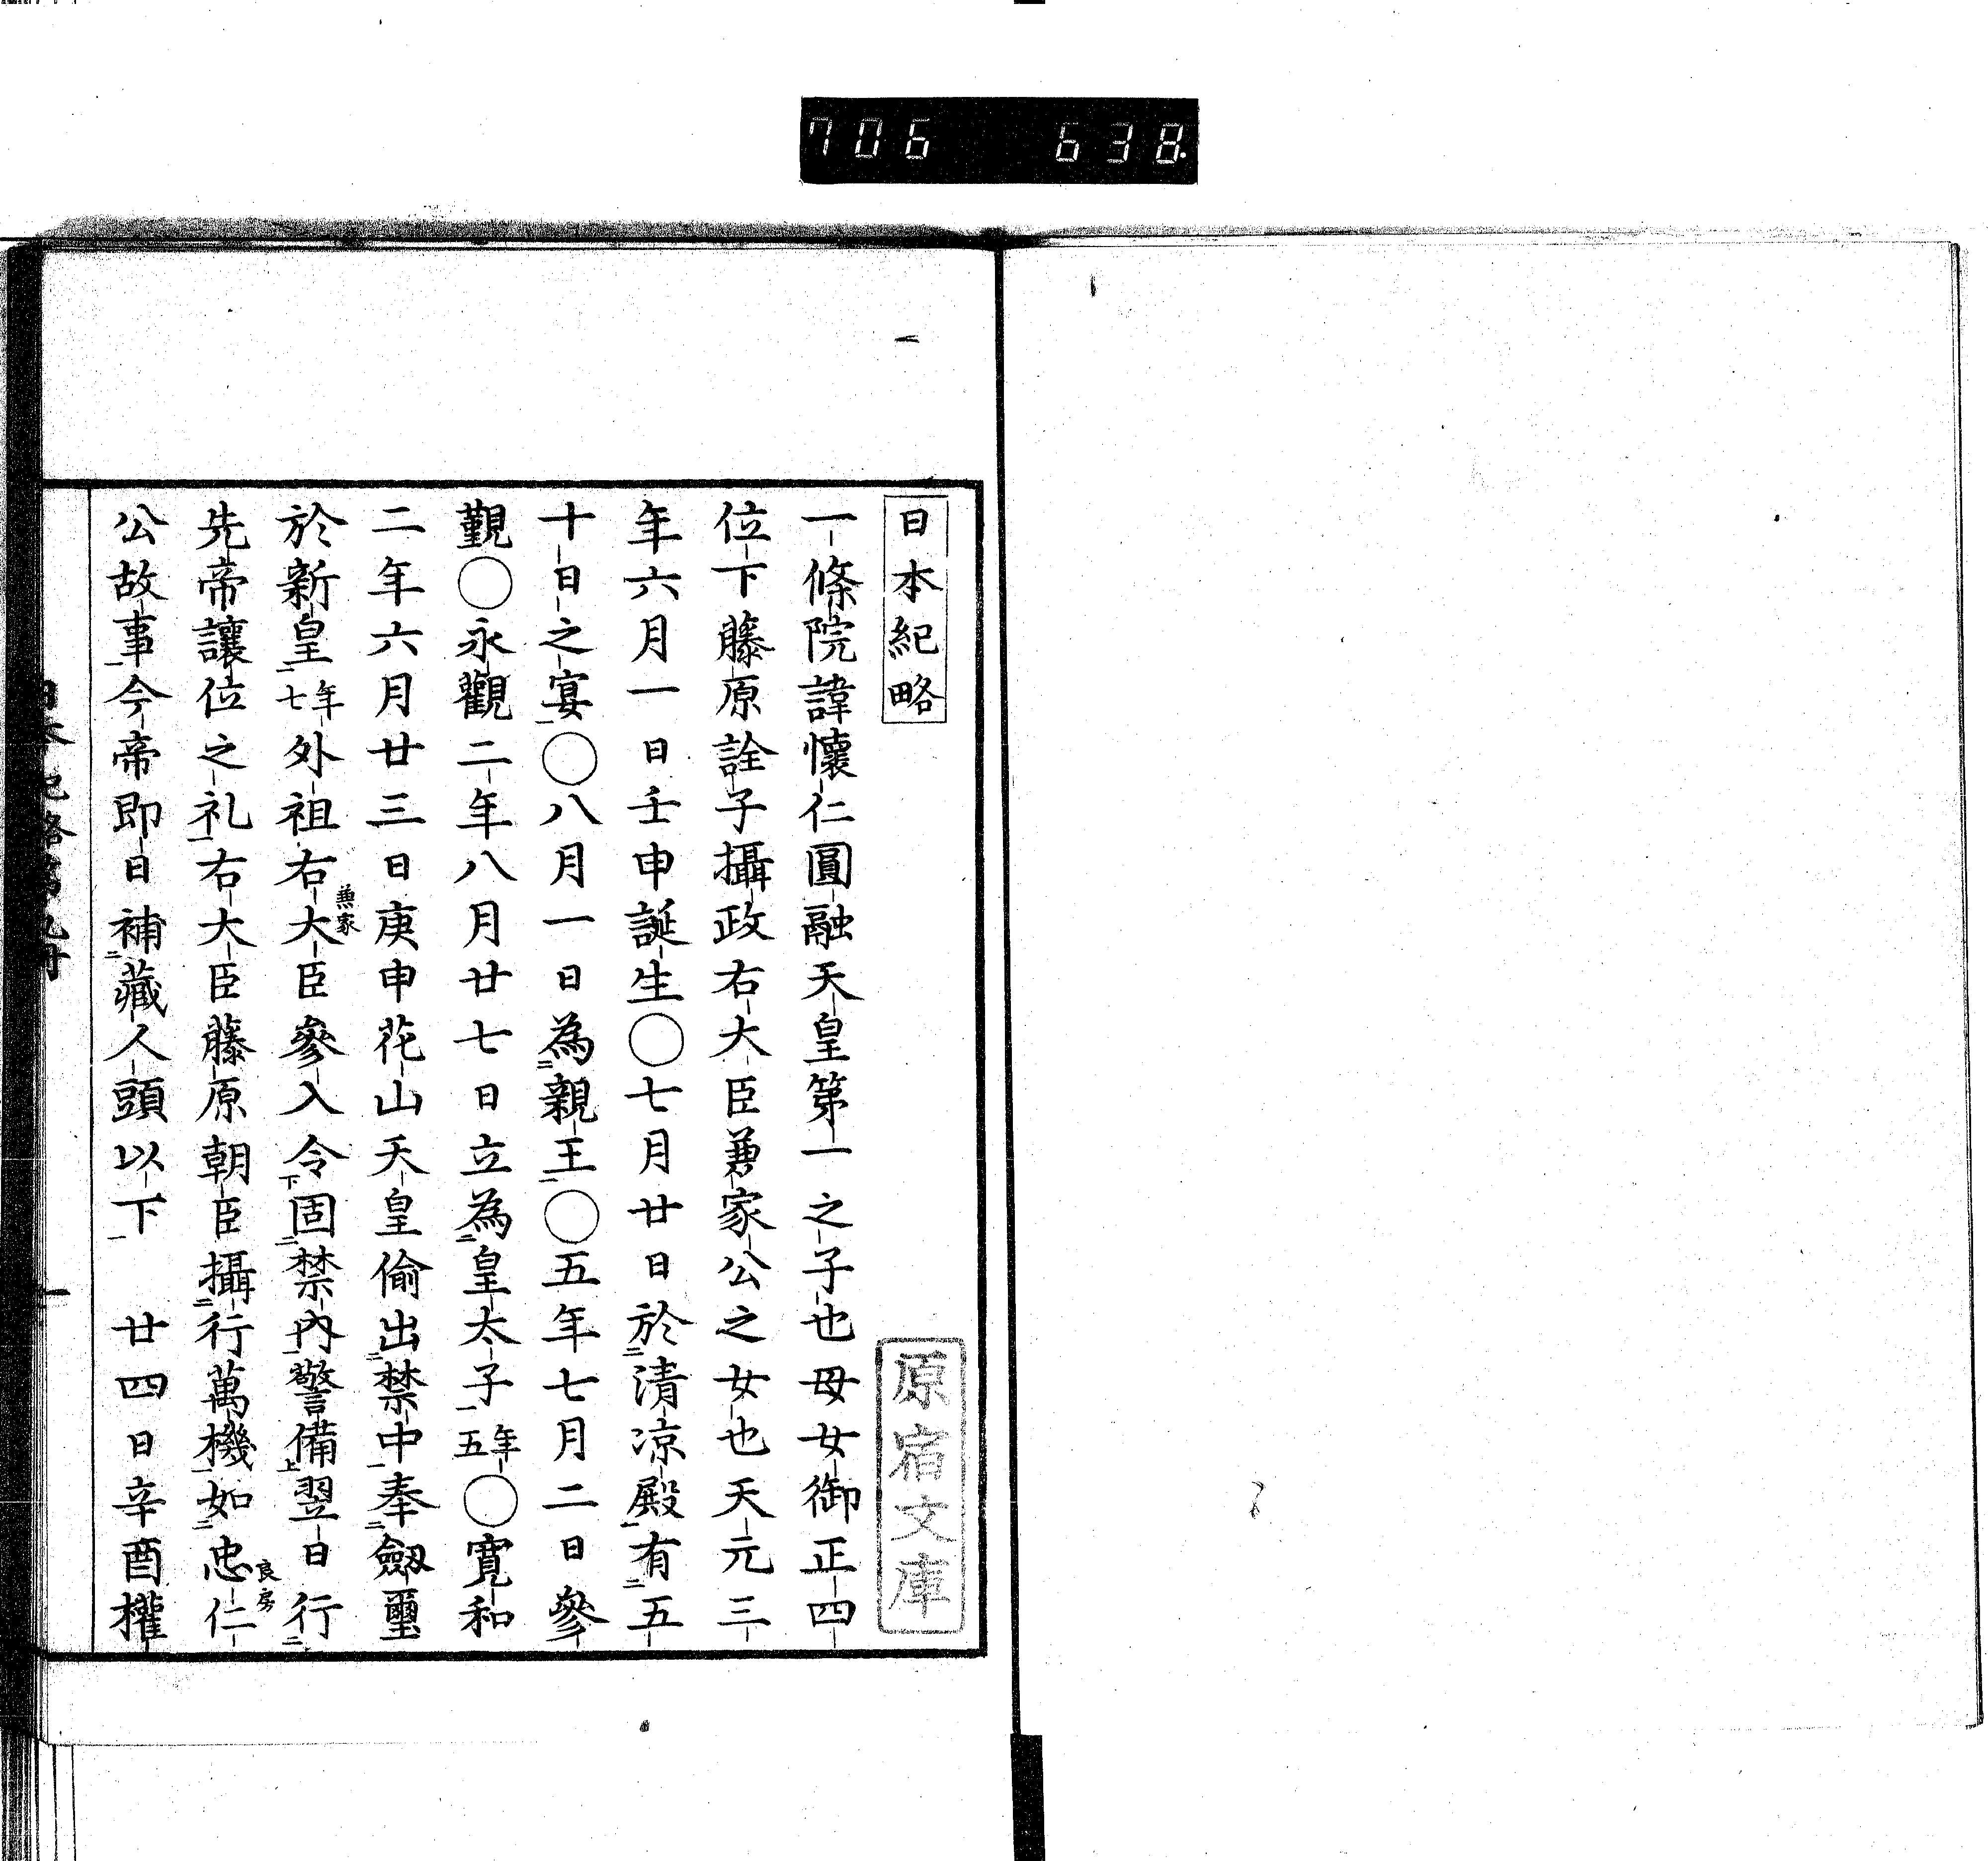 706 638.
日本紀略
原宿文庫
一條院諱懷仁圓融天皇第一之子也母女御正四
位下藤原詮子攝政右大臣兼家公之女也天元三
年六月一日壬申誕生○七月廿日於二清凉殿一有二五
十日之宴一○八月一日為二親王一○五年七月二日參
覲○永觀二年八月廿七日立為二皇太子一年五○寬和
二年六月廿三日庚申花山天皇偷出二禁中一奉二劔璽
於新皇一年七外祖右大臣兼家參入令下固二禁內一警備上翌日行二
先帝讓位之礼一右大臣藤原朝臣攝二行萬機一如二忠仁良房
公故事一今帝即日補二藏人頭以下一　廿四日辛酉權